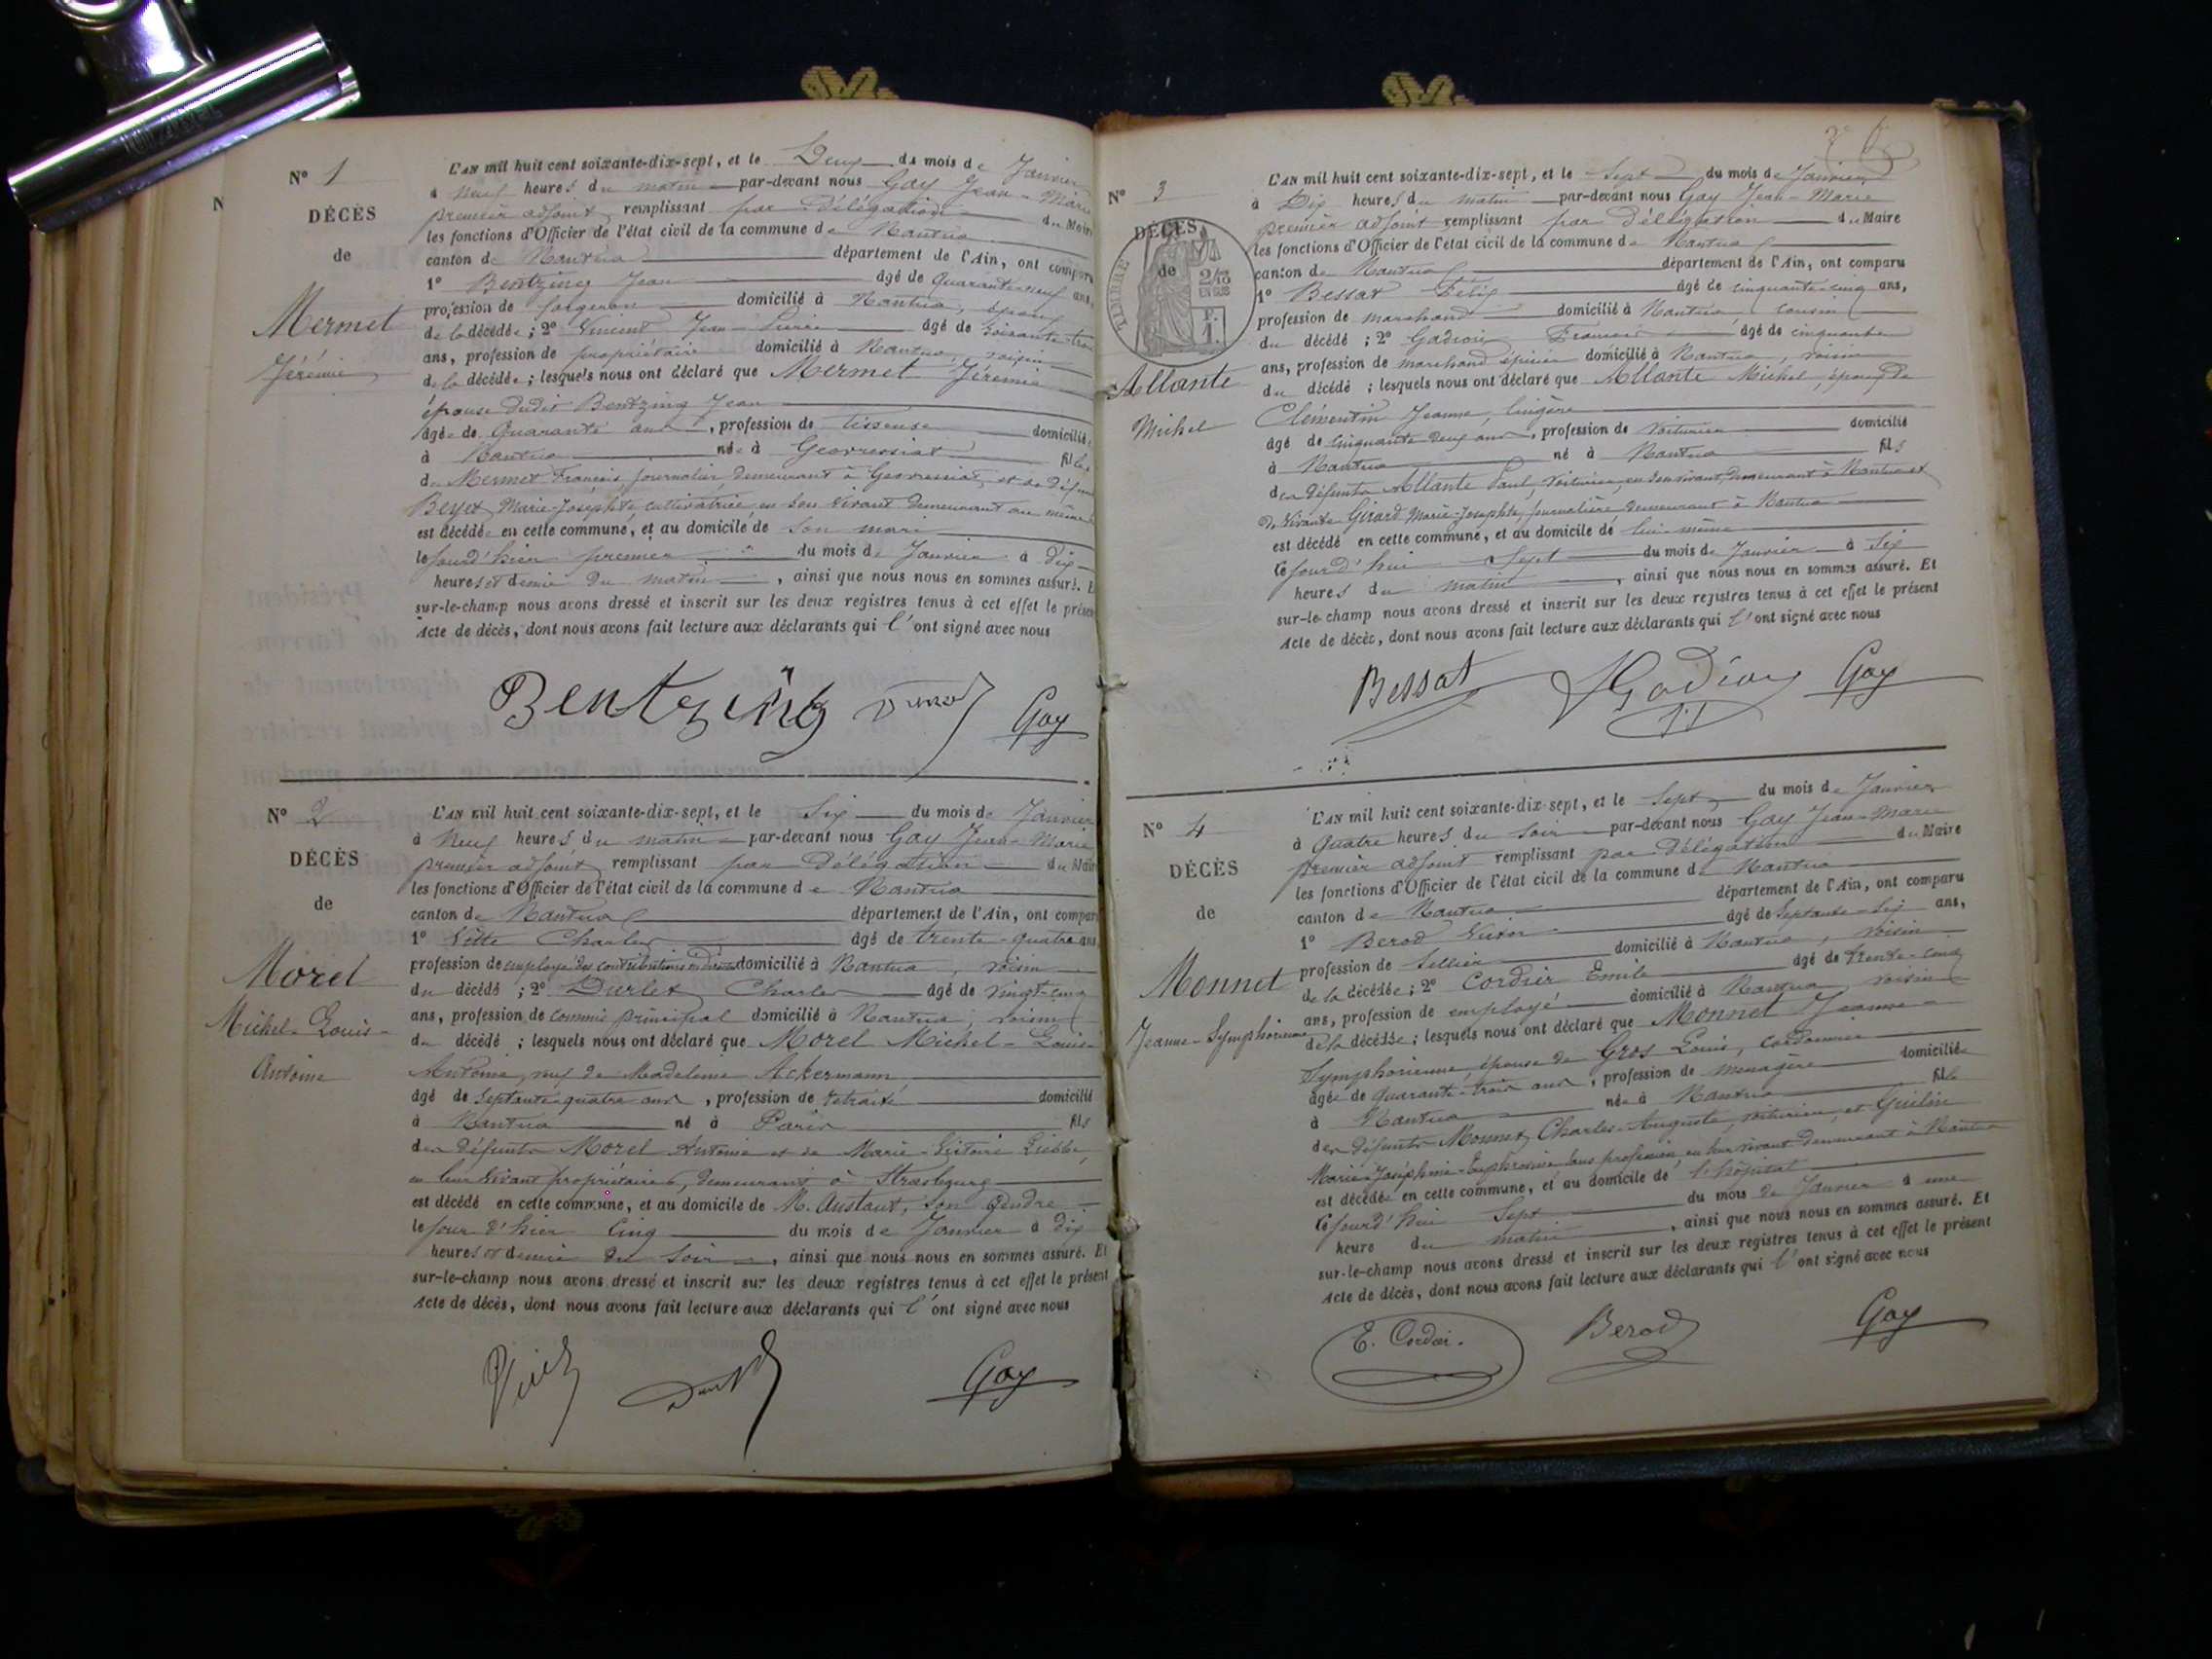 N° 1
DÉCÈS
de
Mermet
Jérémie
L'AN mil huit cent soixante-dix-sept, et le Deux du mois de Janvier
à neuf heures du matin par-devant nous Gay Jean-Marie
premier adjoint remplissant par délégation du Maire
les fonctions d'Officier de l'état civil de la commune de Nantua
canton de Nantua département de l'Ain, ont comparu
1° Bentzing Jean âgé de Quarante-neuf ans,
profession de forgeron domicilié à Nantua, époux
de la décédée ; 2° Vincent Jean-Pierre âgé de soixante-trois
ans, profession de propriétaire domicilié à Nantua, voisin
de la décédée ; lesquels nous ont déclaré que Mermet Jérémie
épouse dudit Bentzing Jean
âgée de Quarante ans, profession de tisseuse domiciliée
à Nantua née à Geovressiat fille
de Mermet François journalier, demeurant à Geovressiat, et de défunte
Beyet Marie-Josephte cultivatrice en son vivant demeurant au même
est décédée en cette commune, et au domicile de son mari
le jour d'hier premier du mois de Janvier à dix
heures et demie du matin, ainsi que nous nous en sommes assuré. Et
sur-le-champ nous avons dressé et inscrit sur les deux registres tenus à cet effet le présent
Acte de décès, dont nous avons fait lecture aux déclarants qui l'ont signé avec nous
Bentzing Gay
N° 2
DÉCÈS
de
Morel
Michel-Louis-
Antoine
L'AN mil huit cent soixante-dix-sept, et le Six du mois de Janvier
à neuf heures du matin par-devant nous Gay Jean-Marie
premier adjoint remplissant par délégation du Maire
les fonctions d'Officier de l'état civil de la commune de Nantua
canton de Nantua département de l'Ain, ont comparu
1° Vitte Charles âgé de trente-quatre ans,
profession de employé des contributions indirectes domicilié à Nantua, voisin
du décédé ; 2° Durlet Charles âgé de vingt-cinq
ans, profession de commis principal domicilié à Nantua, voisin
du décédé ; lesquels nous ont déclaré que Morel Michel-Louis-
Antoine, veuf de Madeleine Ackermann,
âgé de septante-quatre ans, profession de retraité domicilié
à Nantua né à Paris fils
des défunts Morel Antoine et de Marie-Victoire
en leur vivant propriétaires, demeurant à Strasbourg
est décédé en cette commune, et au domicile de M. Austaut, son gendre
le jour d'hier Cinq du mois de Janvier à dix
heures et demie du soir, ainsi que nous nous en sommes assuré. Et
sur-le-champ nous avons dressé et inscrit sur les deux registres tenus à cet effet le présent
Acte de décès, dont nous avons fait lecture aux déclarants qui l'ont signé avec nous
Gay
N° 3
DÉCÈS
de
TIMBRE
2/10 EN SUS
F. 1.
Allante
Michel
L'AN mil huit cent soixante-dix-sept, et le Sept du mois de Janvier
à Dix heures du matin par-devant nous Gay Jean-Marie
premier adjoint remplissant par délégation du Maire
les fonctions d'Officier de l'état civil de la commune de Nantua
canton de Nantua département de l'Ain, ont comparu
1° Bessat Félix âgé de cinquante-cinq ans,
profession de marchand domicilié à Nantua cousin
du décédé ; 2° Gadiou François âgé de cinquante
ans, profession de marchand épicier domicilié à Nantua, voisin
du décédé ; lesquels nous ont déclaré que Allante Michel, époux de
Clémentin Jeanne, lingère
âgé de cinquante deux ans, profession de voiturier domicilié
à Nantua né à Nantua fils
des défunts Allante Paul, voiturier, en son vivant, demeurant à Nantua et
de vivante Girard Marie-Josephte, journalière demeurant à Nantua
est décédé en cette commune, et au domicile de lui-même
le jour d'hui Sept du mois de Janvier à Six
heures du matin, ainsi que nous nous en sommes assuré. Et
sur-le-champ nous avons dressé et inscrit sur les deux registres tenus à cet effet le présent
Acte de décès, dont nous avons fait lecture aux déclarants qui l'ont signé avec nous
Bessat Gadiou Gay
N° 4
DÉCÈS
de
Monnet
Jeanne-Symphorienne
L'AN mil huit cent soixante-dix-sept, et le Sept du mois de Janvier
à Quatre heures du soir par-devant nous Gay Jean-Marie
premier adjoint remplissant par délégation du Maire
les fonctions d'Officier de l'état civil de la commune de Nantua
canton de Nantua département de l'Ain, ont comparu
1° Berod Victor âgé de Septante-six ans,
profession de sellier domicilié à Nantua, voisin
de la décédée ; 2° Cordier Emile âgé de trente-cinq
ans, profession de employé domicilié à Nantua voisin
de la décédée ; lesquels nous ont déclaré que Monnet Jeanne-
Symphorienne, épouse de Gros Louis, cordonnier
âgée de quarante-trois ans, profession de ménagère domiciliée
à Nantua née à Nantua fille
des défunts Monnet Charles-Auguste, voiturier, et Guilin
Marie-Joséphine-Euphrosine sans profession, en leur vivant demeurant à Nantua
est décédée en cette commune, et au domicile de l'hôpital
le jour d'hui Sept du mois de Janvier à une
heure du matin, ainsi que nous nous en sommes assuré. Et
sur-le-champ nous avons dressé et inscrit sur les deux registres tenus à cet effet le présent
Acte de décès, dont nous avons fait lecture aux déclarants qui l'ont signé avec nous
E. Cordier. Berod Gay